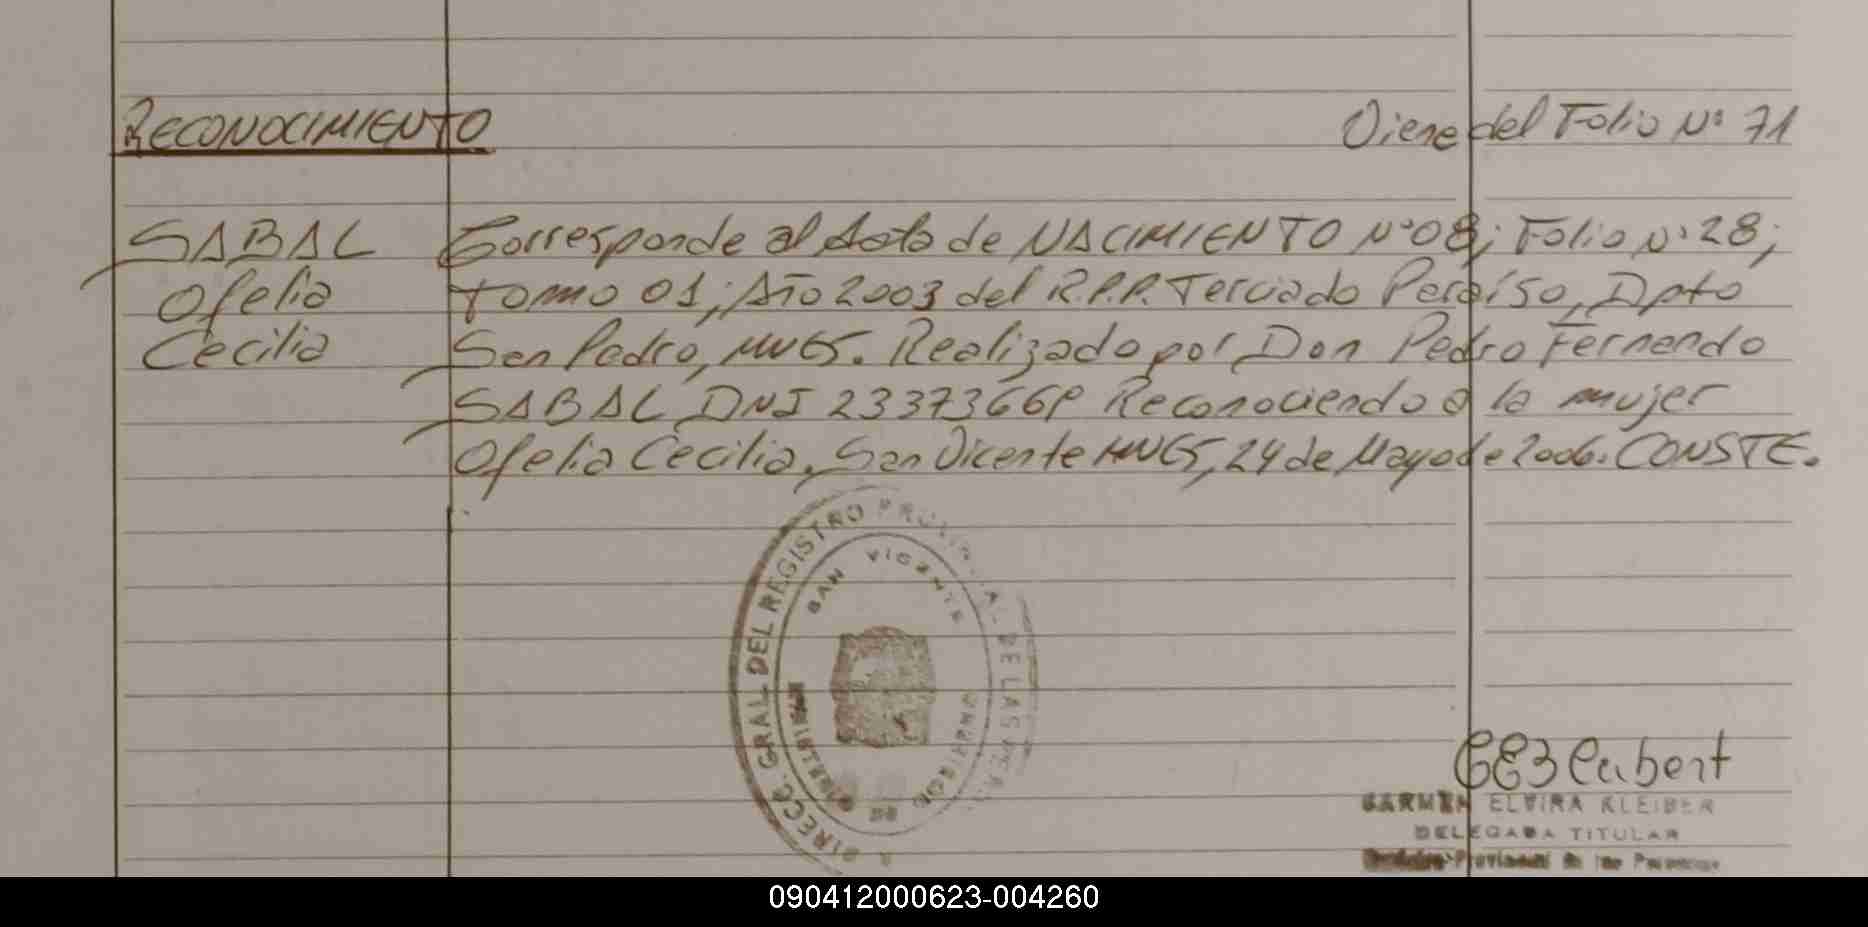 RECONOCIMIENTO
Viene del Folio Nº 71
SABAL
Ofelia
Cecilia
Corresponde al Acta de NACIMIENTO Nº08; Folio Nº28;
tomo 01; Año 2003 del R.P.P. Terciado Paraíso, Dpto
San Pedro, MNES. Realizado por Don Pedro Fernando
SABAL DNI 23373669 Reconociendo a la mujer
Ofelia Cecilia, San Vicente MNES, 24 de Mayo de 2006. CONSTE.
DIRECC. GRAL DEL REGISTRO PROVINCIAL DE LAS
SAN VICENTE
CARMEN ELVIRA KLEIBER
DELEGADA TITULAR
Provincial de las Personas
090412000623-004260